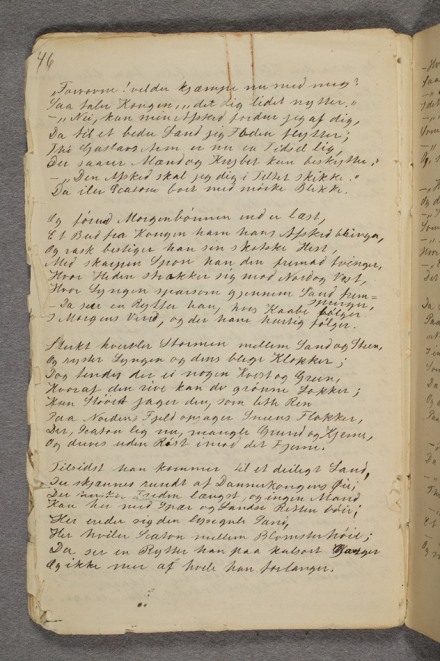 46
"Forvovne! vil du kjæmpe nu med mig?
Saa taler Kongen, "det dig lidet nytter."
— "Nei, kun min Afsked fordrer jeg af dig,
Da til et bedre Land jeg Foden flytter;
Thi Gustavs Navn er nu en Tidsel lig,
Der saarer Mænd og Krybet kun beskytter."
— "Din Afsked skal jeg dig i Teltet skikke."
Da iler Seaton bort med mørke Blikke.
Og førend Morgenbønnen end er læst,
Et Bud fra Kongen ham hans Afsked bringer,
Og rask bestiger han sin skotske Hest,
Med skarpen Spore han den fremad tvinger,
Hvor Heden strækker sig mod Nord og Vest,
Hvor Lyngen sparsom gjennem Sand frem=
springer,
— Da seer en Rytter han, hvis Kaabe bølger
I Morgens Vind, og der ham hurtig følger.
Stærkt hvirvler Stormen mellem Sand og Steen,
Og ryster Lyngen og dens blege Klokker;
Dog kendes der ei nogen Kvist og Green,
Hvoraf den rive kan de grønne Lokker;
Kun Støvet jager den, som let en Ren
Paa Nordens Fjeld opjager Sneens Flokker,
Der, Seaton lig nu, mangle Grund og Hjem,
Og drives uden Røst imod det Fjerne.
Tilsidst han kommer til et deiligt Land,
Der skjønnes rundt af Dannerkongens Øie;
Der Freden længst, og ingen Mand
Kan her med Spær og Landse Retten bøie;
Her ender sig den Sand,
Her hviler Seaton mellem Blomsterhøie;
Da seer en Rytter han paa kulsort Ganger
Og ikke mer af hvile han forlanger.